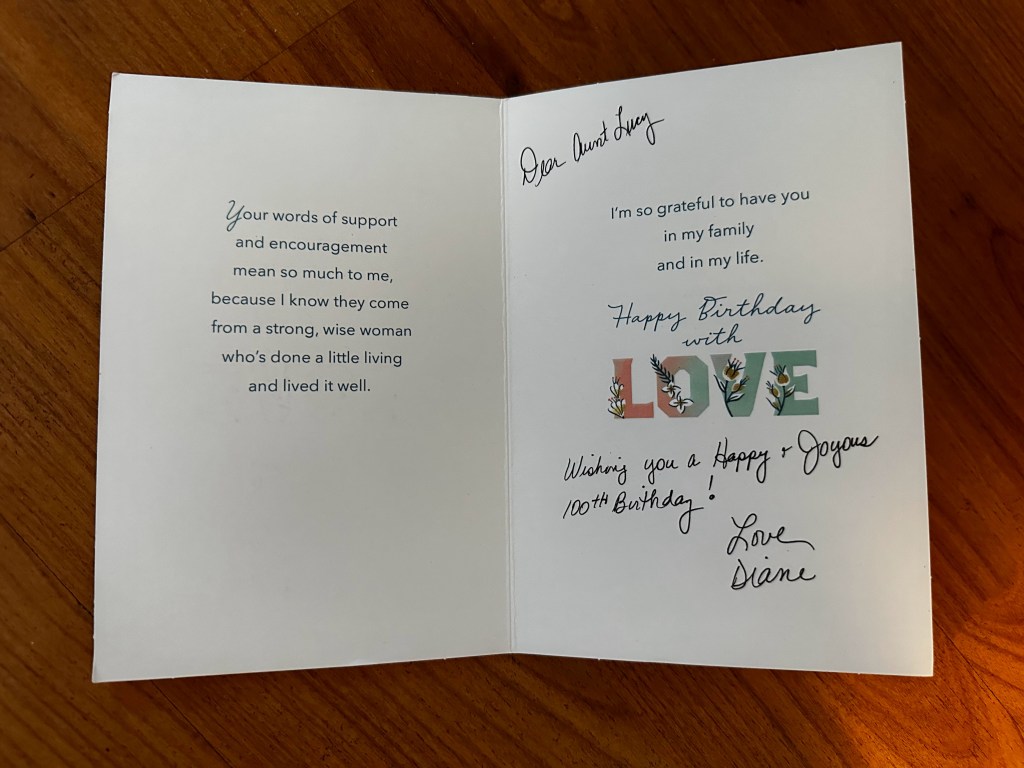 Your words of support
and encouragement
mean so much to me,
because I know they come
from a strong, wise woman
who's done a little living
and lived it well.
Dear Aunt Lucy
I'm so grateful to have you
in my family
and in my life.
Happy Birthday
with
LOVE
Wishing you a Happy & Joyous
100th Birthday!
Love
Diane